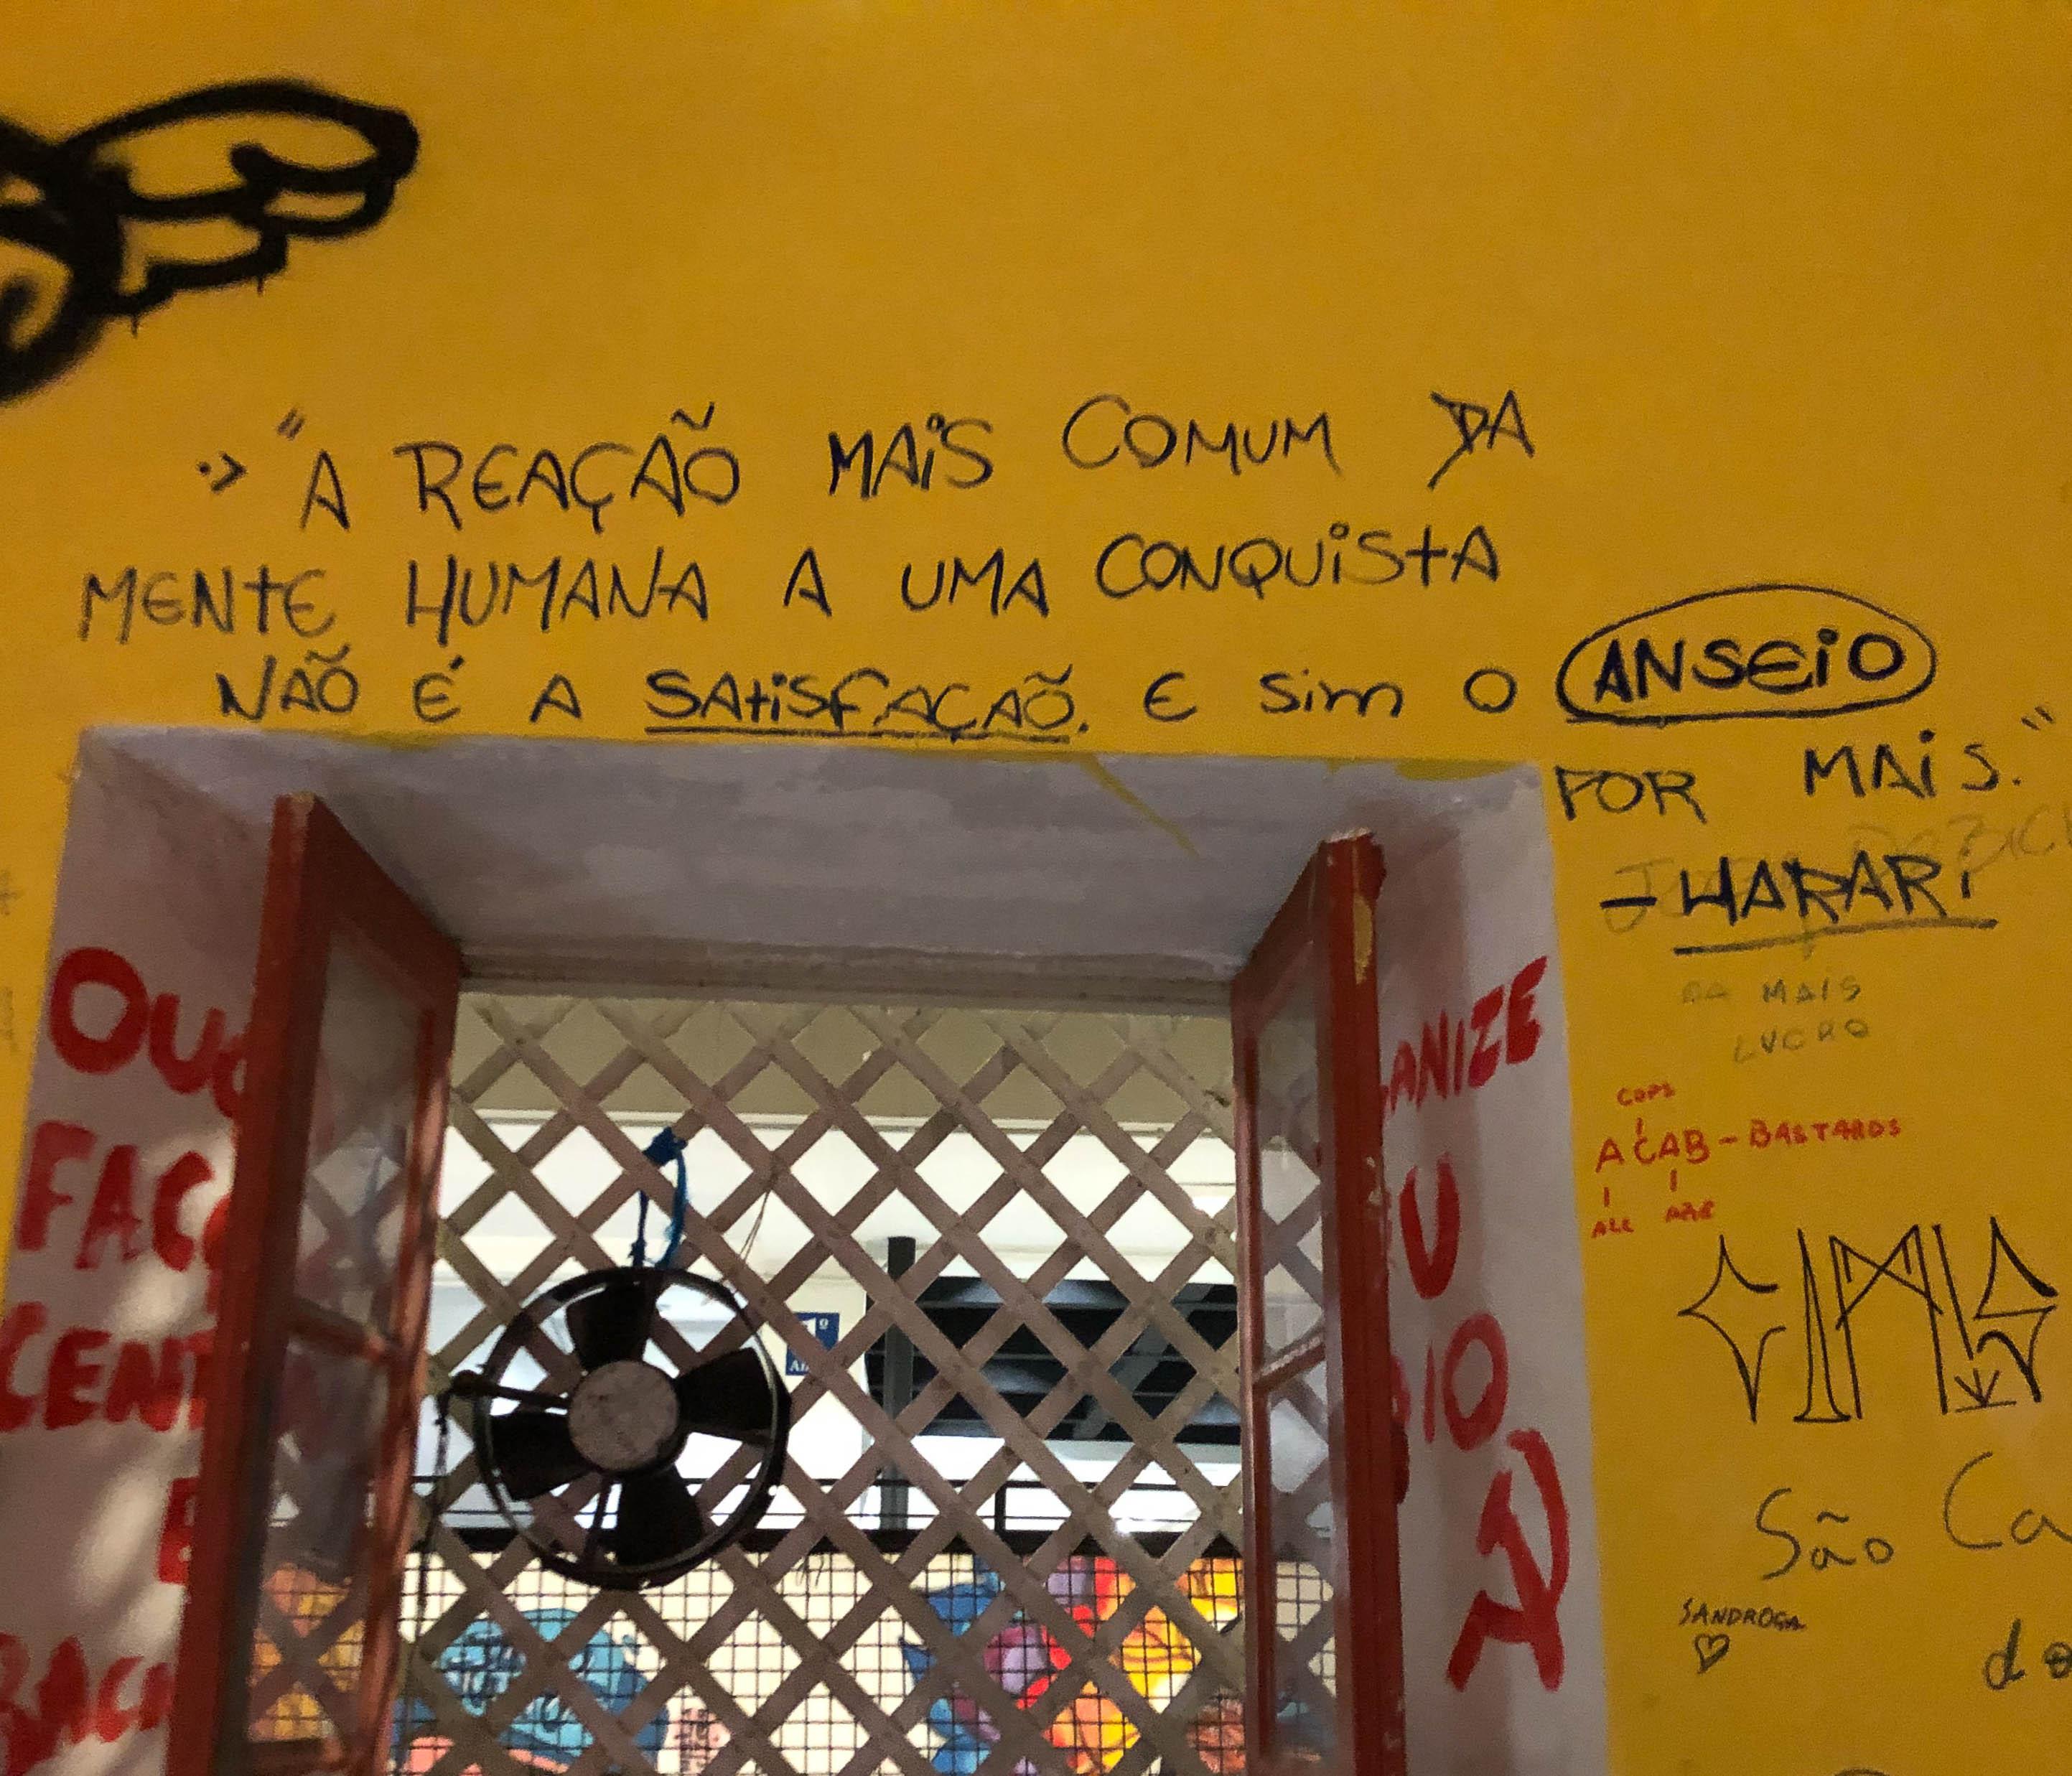 "A REAÇÃO MAIS COMUM DA
MENTE HUMANA A UMA CONQUISTA
NÃO É A SATISFAÇÃO. E SIM O ANSEIO
POR MAIS."
- HARARI
DA MAIS
LUCRO
COPS
ACAB - BASTARDS
ALL ARE
São Ca
SANDROGA
do
OUÇ
FAÇ
CENT
E
RACI
ANIZE
U
IO